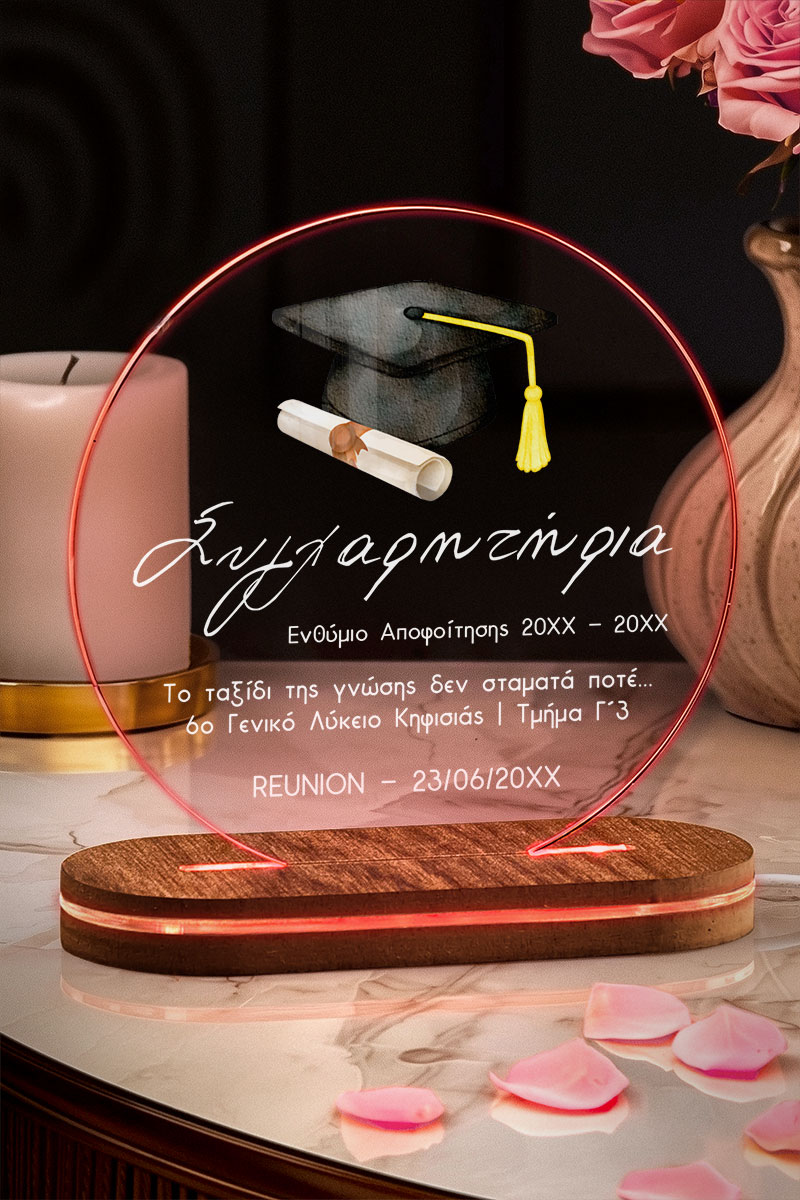 Συγχαρητήρια
Ενθύμιο Αποφοίτησης 20XX – 20XX
Το ταξίδι της γνώσης δεν σταματά ποτέ...
6ο Γενικό Λύκειο Κηφισιάς | Τμήμα Γ΄3
REUNION – 23/06/20XX